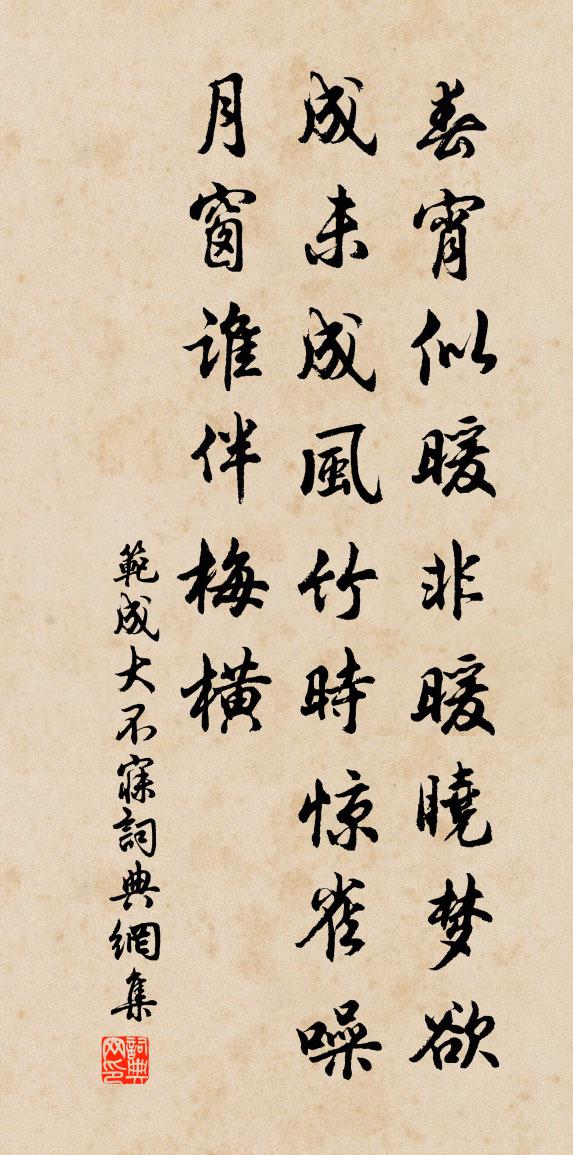 春宵似暖非暖曉梦欲
成未成風竹時惊雀噪
月窗誰伴梅橫
範成大不寐詞典網集
詞典網印